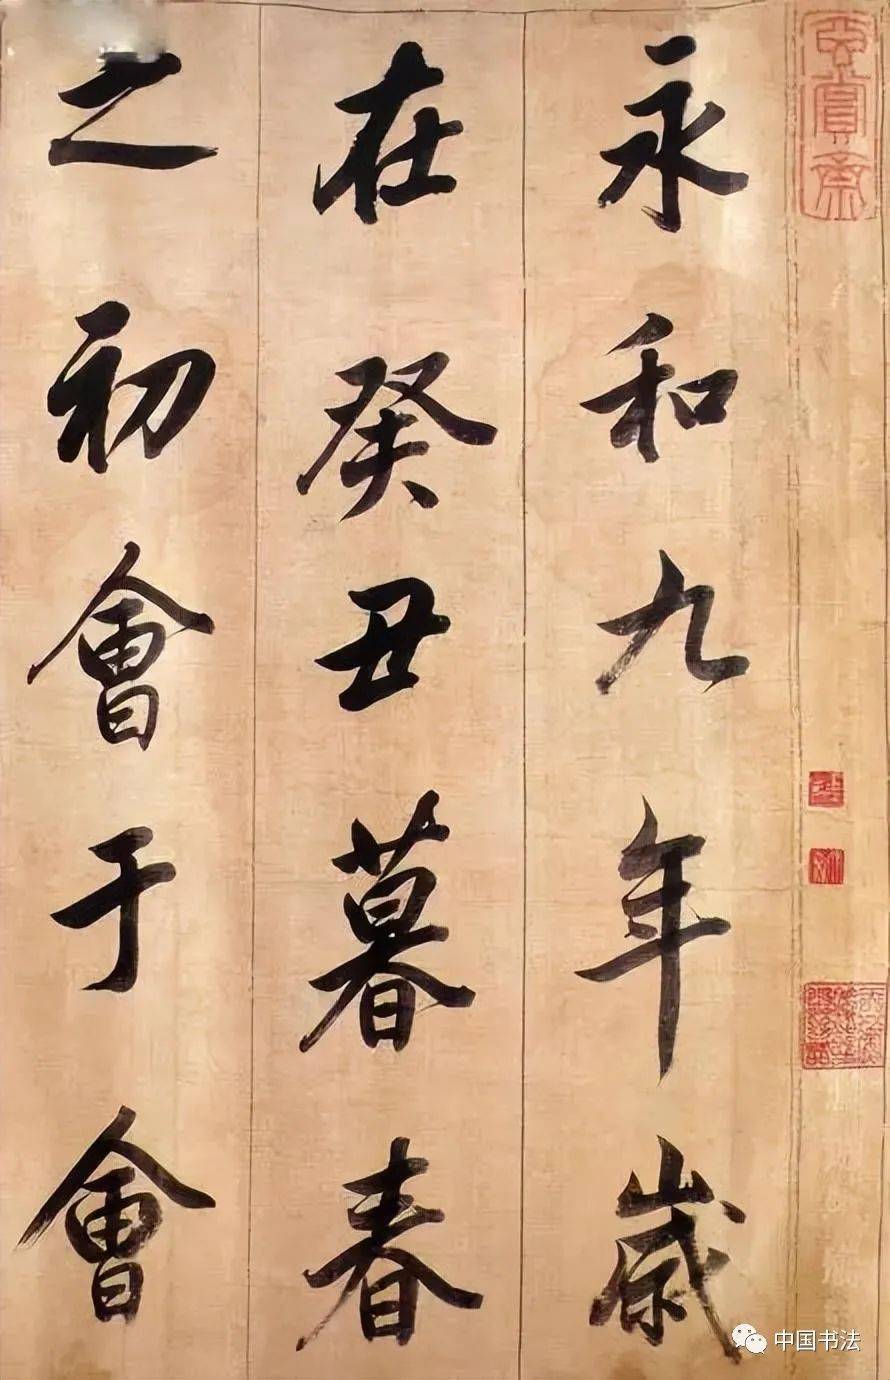 永和九年歲
在癸丑暮春
之初會于會
玄賞齋
中国书法